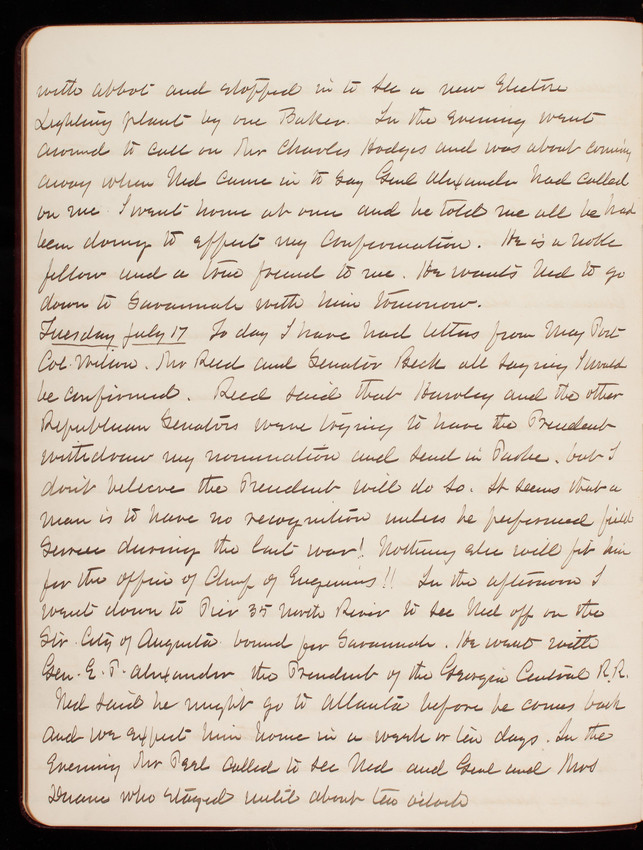 with Abbot and stopped in to see a new Electric
Lighting plant by one Baker. In the evening went
around to call on Mr Charles Hodges and was about coming
away when Ned came in to say Genl Alexander had called
on me. I went home at once and he told me all he had
been doing to effect my confirmation. He is a noble
fellow and a true friend to me. He wants Ned to go
down to Savannah with him tomorrow.
Tuesday July 17 To day I have had letters from May Post
Col. Wilson. Mr Reed and Senator Beck all saying I would
be confirmed. Reed said that Hawley and the other
Republican Senators were trying to have the President
withdraw my nomination and send in Parke. but I
don't believe the President will do so. It seems that a
man is to have no recognition unless he performed field
service during the last war! Nothing else will fit him
for the office of Chief of Engineers!! In the afternoon I
went down to Pier 35 North River to see Ned off on the
Str. City of Augusta bound for Savannah. He went with
Gen. E. P. Alexander the President of the Georgia Central R.R.
Ned said he might go to Atlanta before he comes back
and we expect him home in a week or ten days. In the
evening Mr Peel called to see Ned and Genl and Mrs
Duane who stayed until about ten o'clock